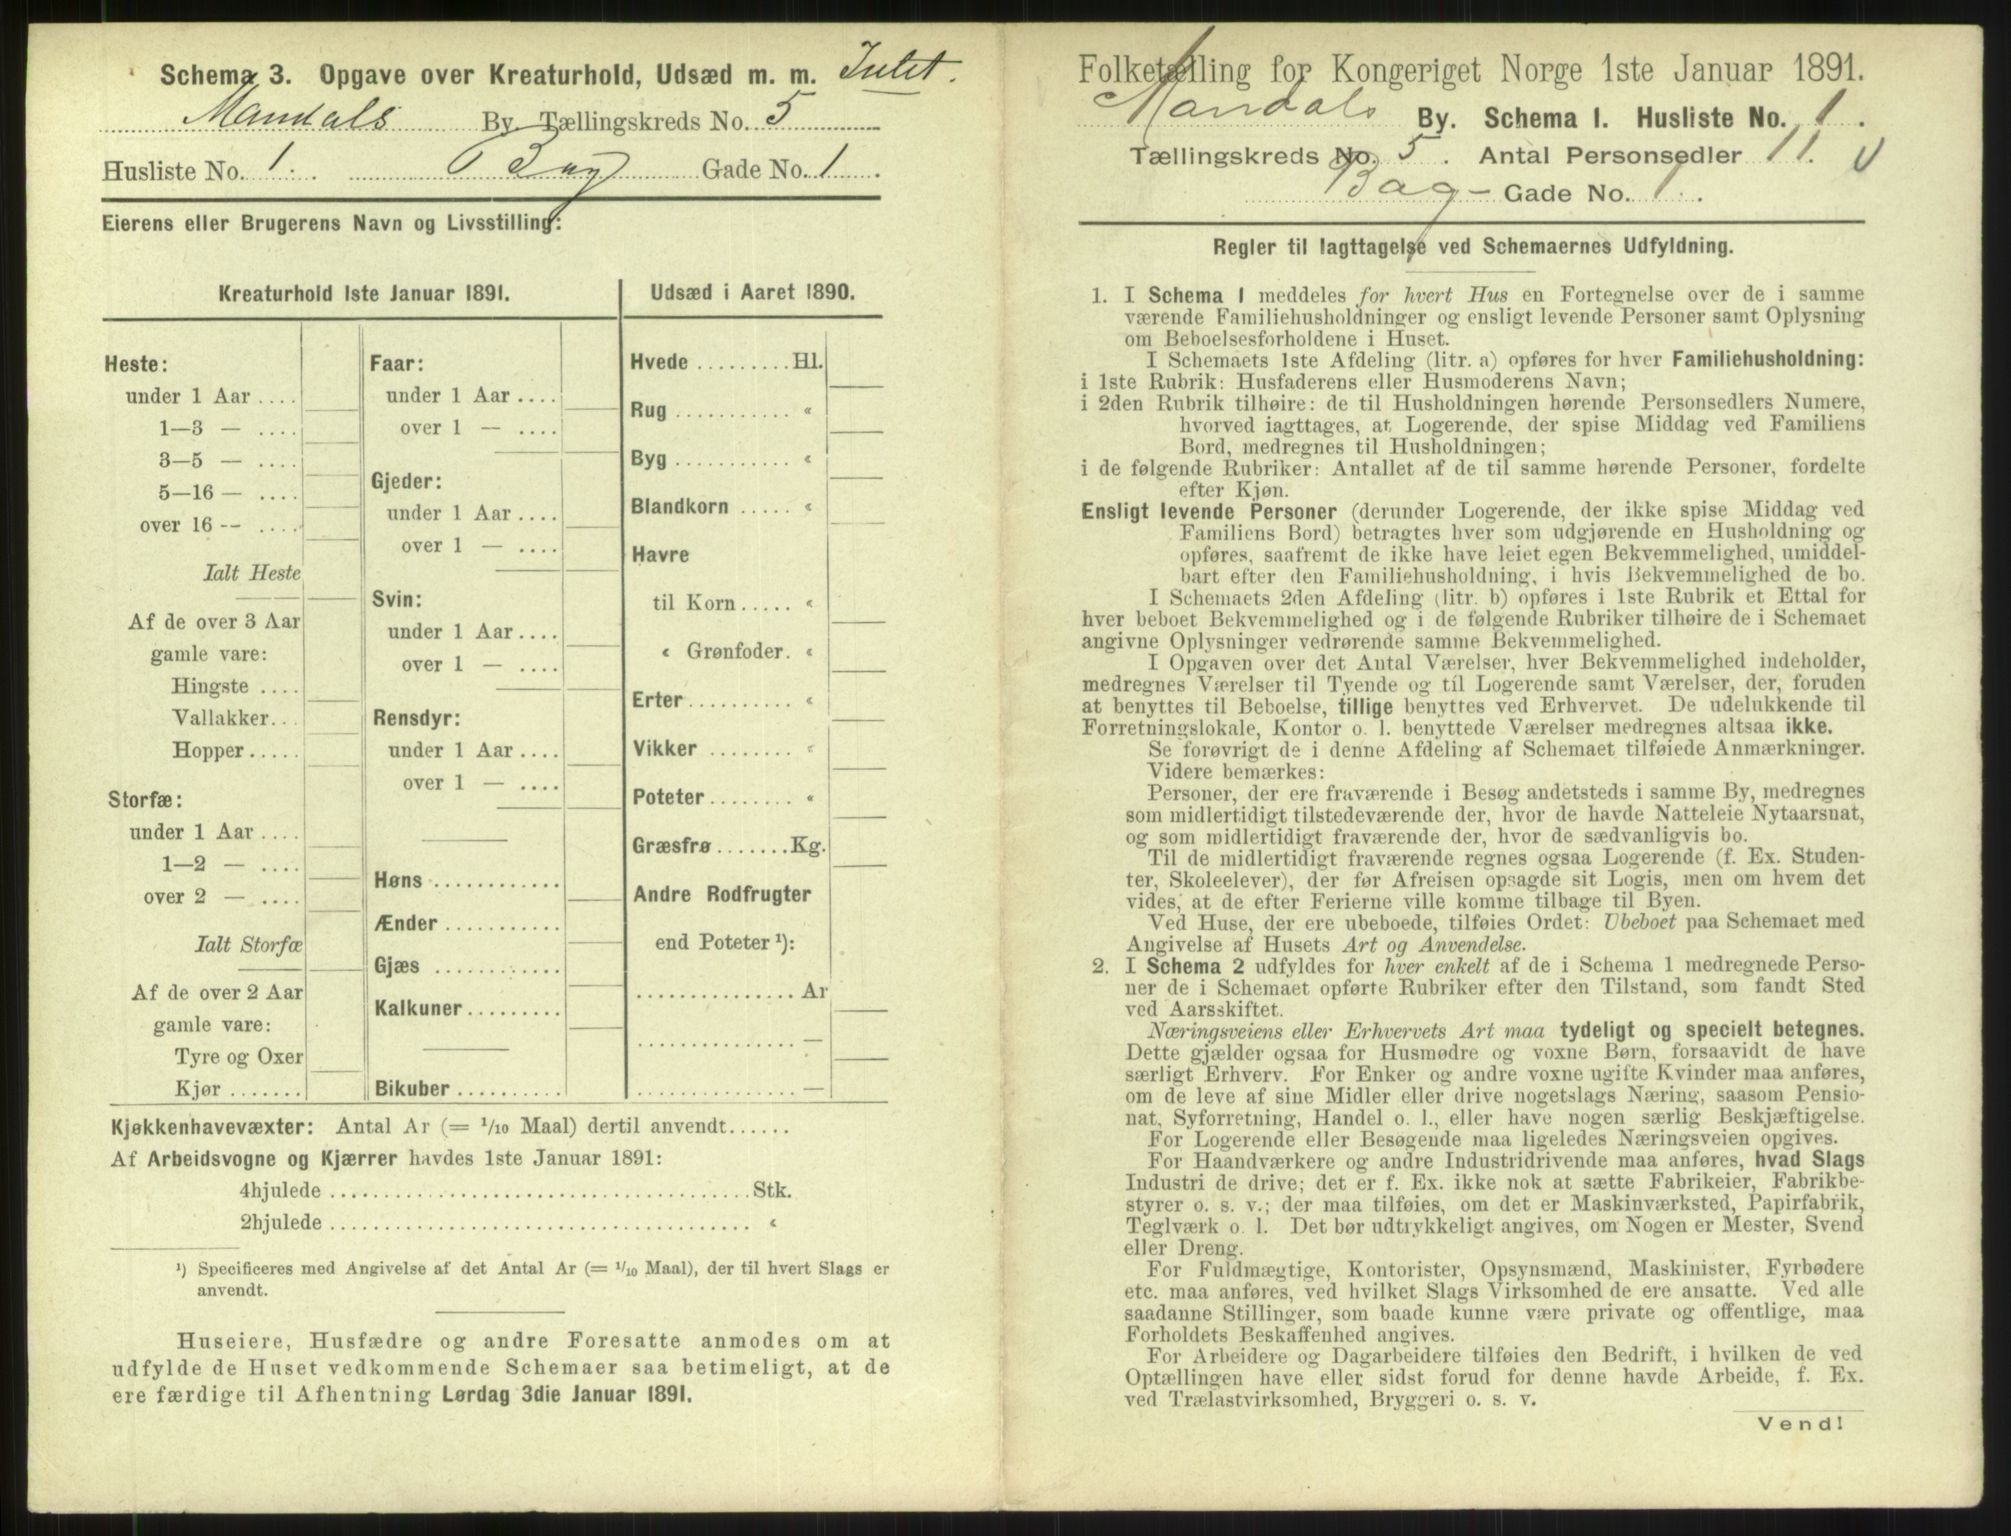 Schema 3. Opgave over Kreaturhold, Udsæd m. m. Intet.
Mandals By. Tællingskreds No. 5
Husliste No. 1. Bag Gade No. 1.
Eierens eller Brugerens Navn og Livsstilling:
Kreaturhold 1ste Januar 1891.
Heste:
under 1 Aar ....
1—3 — ....
3—5 — ....
5—16 — ....
over 16 -- ....
Ialt Heste
Af de over 3 Aar
gamle vare:
Hingste ....
Vallakker...
Hopper.....
Storfæ:
under 1 Aar ....
1—2 — ....
over 2 — ....
Ialt Storfæ
Af de over 2 Aar
gamle vare:
Tyre og Oxer
Kjør.......
Faar:
under 1 Aar ....
over 1 — ....
Gjeder:
under 1 Aar ....
over 1 — ....
Svin:
under 1 Aar....
over 1 — ....
Rensdyr:
under 1 Aar ....
over 1 — ....
Høns ............
Ænder ...........
Gjæs ............
Kalkuner.........
Bikuber..........
Udsæd i Aaret 1890.
Hvede .........Hl.
Rug ........... «
Byg ........... «
Blandkorn ..... «
Havre
til Korn..... «
« Grønfoder. «
Erter.......... «
Vikker ........ «
Poteter........ «
Græsfrø.......Kg.
Andre Rodfrugter
end Poteter ¹):
...............Ar
............... —
............... —
Kjøkkenhavevæxter: Antal Ar (= 1/10 Maal) dertil anvendt......
Af Arbeidsvogne og Kjærrer havdes 1ste Januar 1891:
4hjulede ........................................Stk.
2hjulede ........................................ «
¹) Specificeres med Angivelse af det Antal Ar (= 1/10 Maal), der til hvert Slags er
anvendt.
Huseiere, Husfædre og andre Foresatte anmodes om at
udfylde de Huset vedkommende Schemaer saa betimeligt, at de
ere færdige til Afhentning Lørdag 3die Januar 1891.
Folketælling for Kongeriget Norge 1ste Januar 1891.
Mandals By. Schema 1. Husliste No. 1.
Tællingskreds No. 5. Antal Personsedler 11.
Bag- Gade No. 1.
Regler til Iagttagelse ved Schemaernes Udfyldning.
1. I Schema 1 meddeles for hvert Hus en Fortegnelse over de i samme
værende Familiehusholdninger og ensligt levende Personer samt Oplysning
om Beboelsesforholdene i Huset.
I Schemaets 1ste Afdeling (litr. a) opføres for hver Familiehusholdning:
i 1ste Rubrik: Husfaderens eller Husmoderens Navn;
i 2den Rubrik tilhøire: de til Husholdningen hørende Personsedlers Numere,
hvorved iagttages, at Logerende, der spise Middag ved Familiens
Bord, medregnes til Husholdningen;
i de følgende Rubriker: Antallet af de til samme hørende Personer, fordelte
efter Kjøn.
Ensligt levende Personer (derunder Logerende, der ikke spise Middag ved
Familiens Bord) betragtes hver som udgjørende en Husholdning og
opføres, saafremt de ikke have leiet egen Bekvemmelighed, umiddel-
bart efter den Familiehusholdning, i hvis Bekvemmelighed de bo.
I Schemaets 2den Afdeling (litr. b) opføres i 1ste Rubrik et Ettal for
hver beboet Bekvemmelighed og i de følgende Rubriker tilhøire de i Schemaet
angivne Oplysninger vedrørende samme Bekvemmelighed.
I Opgaven over det Antal Værelser, hver Bekvemmelighed indeholder,
medregnes Værelser til Tyende og til Logerende samt Værelser, der, foruden
at benyttes til Beboelse, tillige benyttes ved Erhvervet. De udelukkende til
Forretningslokale, Kontor o. l. benyttede Værelser medregnes altsaa ikke.
Se forøvrigt de i denne Afdeling af Schemaet tilføiede Anmærkninger.
Videre bemærkes:
Personer, der ere fraværende i Besøg andetsteds i samme By, medregnes
som midlertidigt tilstedeværende der, hvor de havde Natteleie Nytaarsnat,
og som midlertidigt fraværende der, hvor de sædvanligvis bo.
Til de midlertidigt fraværende regnes ogsaa Logerende (f. Ex. Studen-
ter, Skoleelever), der før Afreisen opsagde sit Logis, men om hvem det
vides, at de efter Ferierne ville komme tilbage til Byen.
Ved Huse, der ere ubeboede, tilføies Ordet: Ubeboet paa Schemaet med
Angivelse af Husets Art og Anvendelse.
2. I Schema 2 udfyldes for hver enkelt af de i Schema 1 medregnede Perso-
ner de i Schemaet opførte Rubriker efter den Tilstand, som fandt Sted
ved Aarsskiftet.
Næringsveiens eller Erhvervets Art maa tydeligt og specielt betegnes.
Dette gjælder ogsaa for Husmødre og voxne Børn, forsaavidt de have
særligt Erhverv. For Enker og andre voxne ugifte Kvinder maa anføres,
om de leve af sine Midler eller drive nogetslags Næring, saasom Pensio-
nat, Syforretning, Handel o. l., eller have nogen særlig Beskjæftigelse.
For Logerende eller Besøgende maa ligeledes Næringsveien opgives.
For Haandværkere og andre Industridrivende maa anføres, hvad Slags
Industri de drive; det er f. Ex. ikke nok at sætte Fabrikeier, Fabrikbe-
styrer o. s. v.; der maa tilføies, om det er Maskinværksted, Papirfabrik,
Teglværk o. l. Det bør udtrykkeligt angives, om Nogen er Mester, Svend
eller Dreng.
For Fuldmægtige, Kontorister, Opsynsmænd, Maskinister, Fyrbødere
etc. maa anføres, ved hvilket Slags Virksomhed de ere ansatte. Ved alle
saadanne Stillinger, som baade kunne være private og offentlige, maa
Forholdets Beskaffenhed angives.
For Arbeidere og Dagarbeidere tilføies den Bedrift, i hvilken de ved
Optællingen have eller sidst forud for denne havde Arbeide, f. Ex.
ved Trælastvirksomhed, Bryggeri o. s. v.
Vend!